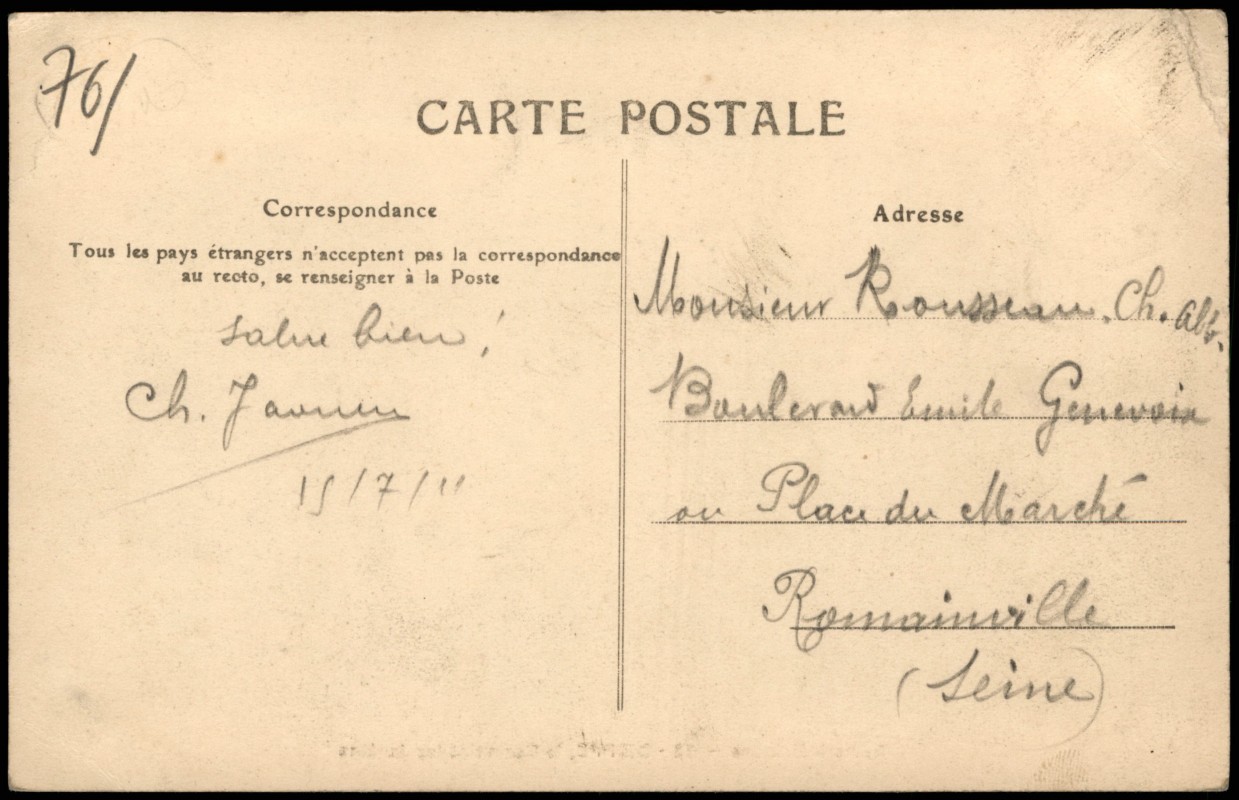 76/
CARTE POSTALE
Correspondance
Tous les pays étrangers n'acceptent pas la correspondance
au recto, se renseigner à la Poste
salue bien!
Ch.
15/7/11
Adresse
Monsieur Rousseau. Ch. Alb.
Boulevard Emile Genevoix
ou Place du Marché
Romainville
(Seine)